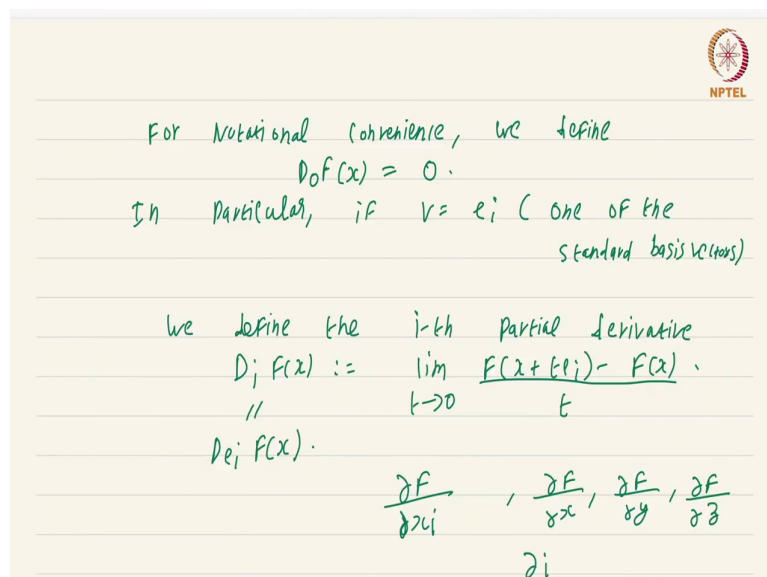 NPTEL
For Notational Convenience, we define
D₀F(x) = 0.
In Particular, if v = eᵢ ( one of the
standard basis vectors)
We define the i-th partial derivative
Dᵢ F(x) := lim F(x + teᵢ) - F(x) .
// t→0 t
Deᵢ F(x).
∂F , ∂F , ∂F , ∂F
∂xᵢ ∂x ∂y ∂z
∂ᵢ